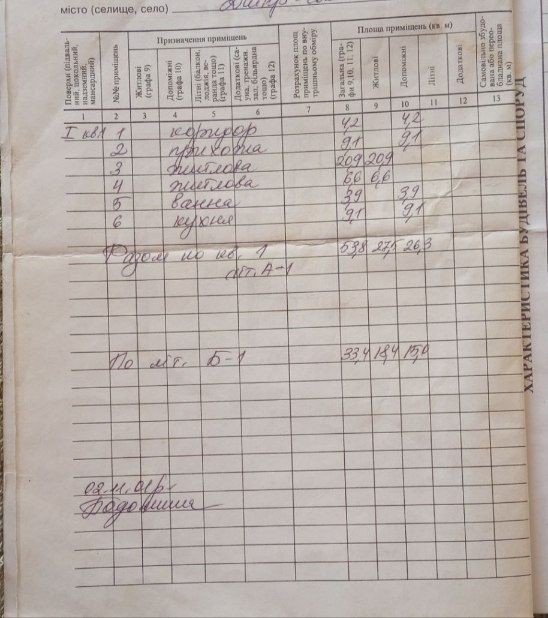 місто (селище, село)
Поверхи (підвальний, цокольний, надземний, мансардний)
№№ приміщень
Призначення приміщень
Житлові (графа 9)
Допоміжні (графа 10)
Літні (балкон, лоджія, веранда тощо) (графа 11)
Додаткові (сауна, тренажн. зал, більярдна тощо) (графа 12)
Розрахунок площ приміщень по внутрішньому обміру
Площа приміщень (кв. м)
Загальна (графи 9, 10, 11, 12)
Житлові
Допоміжні
Літні
Додаткові
1 2 3 4 5 6 7 8 9 10 11 12 13
I кв1 1 коридор 4,2 4,2
2 прихожа 9,1 9,1
3 житлова 20,9 20,9
4 житлова 6,6 6,6
5 ванна 3,9 3,9
6 кухня 9,1 9,1
Разом по кв. 1 53,8 27,5 26,3
літ. А-1
По літ. Б-1 33,4 18,4 15,0
02.11.01р.
ХАРАКТЕРИСТИКА БУДІВЕЛЬ ТА СПОРУД